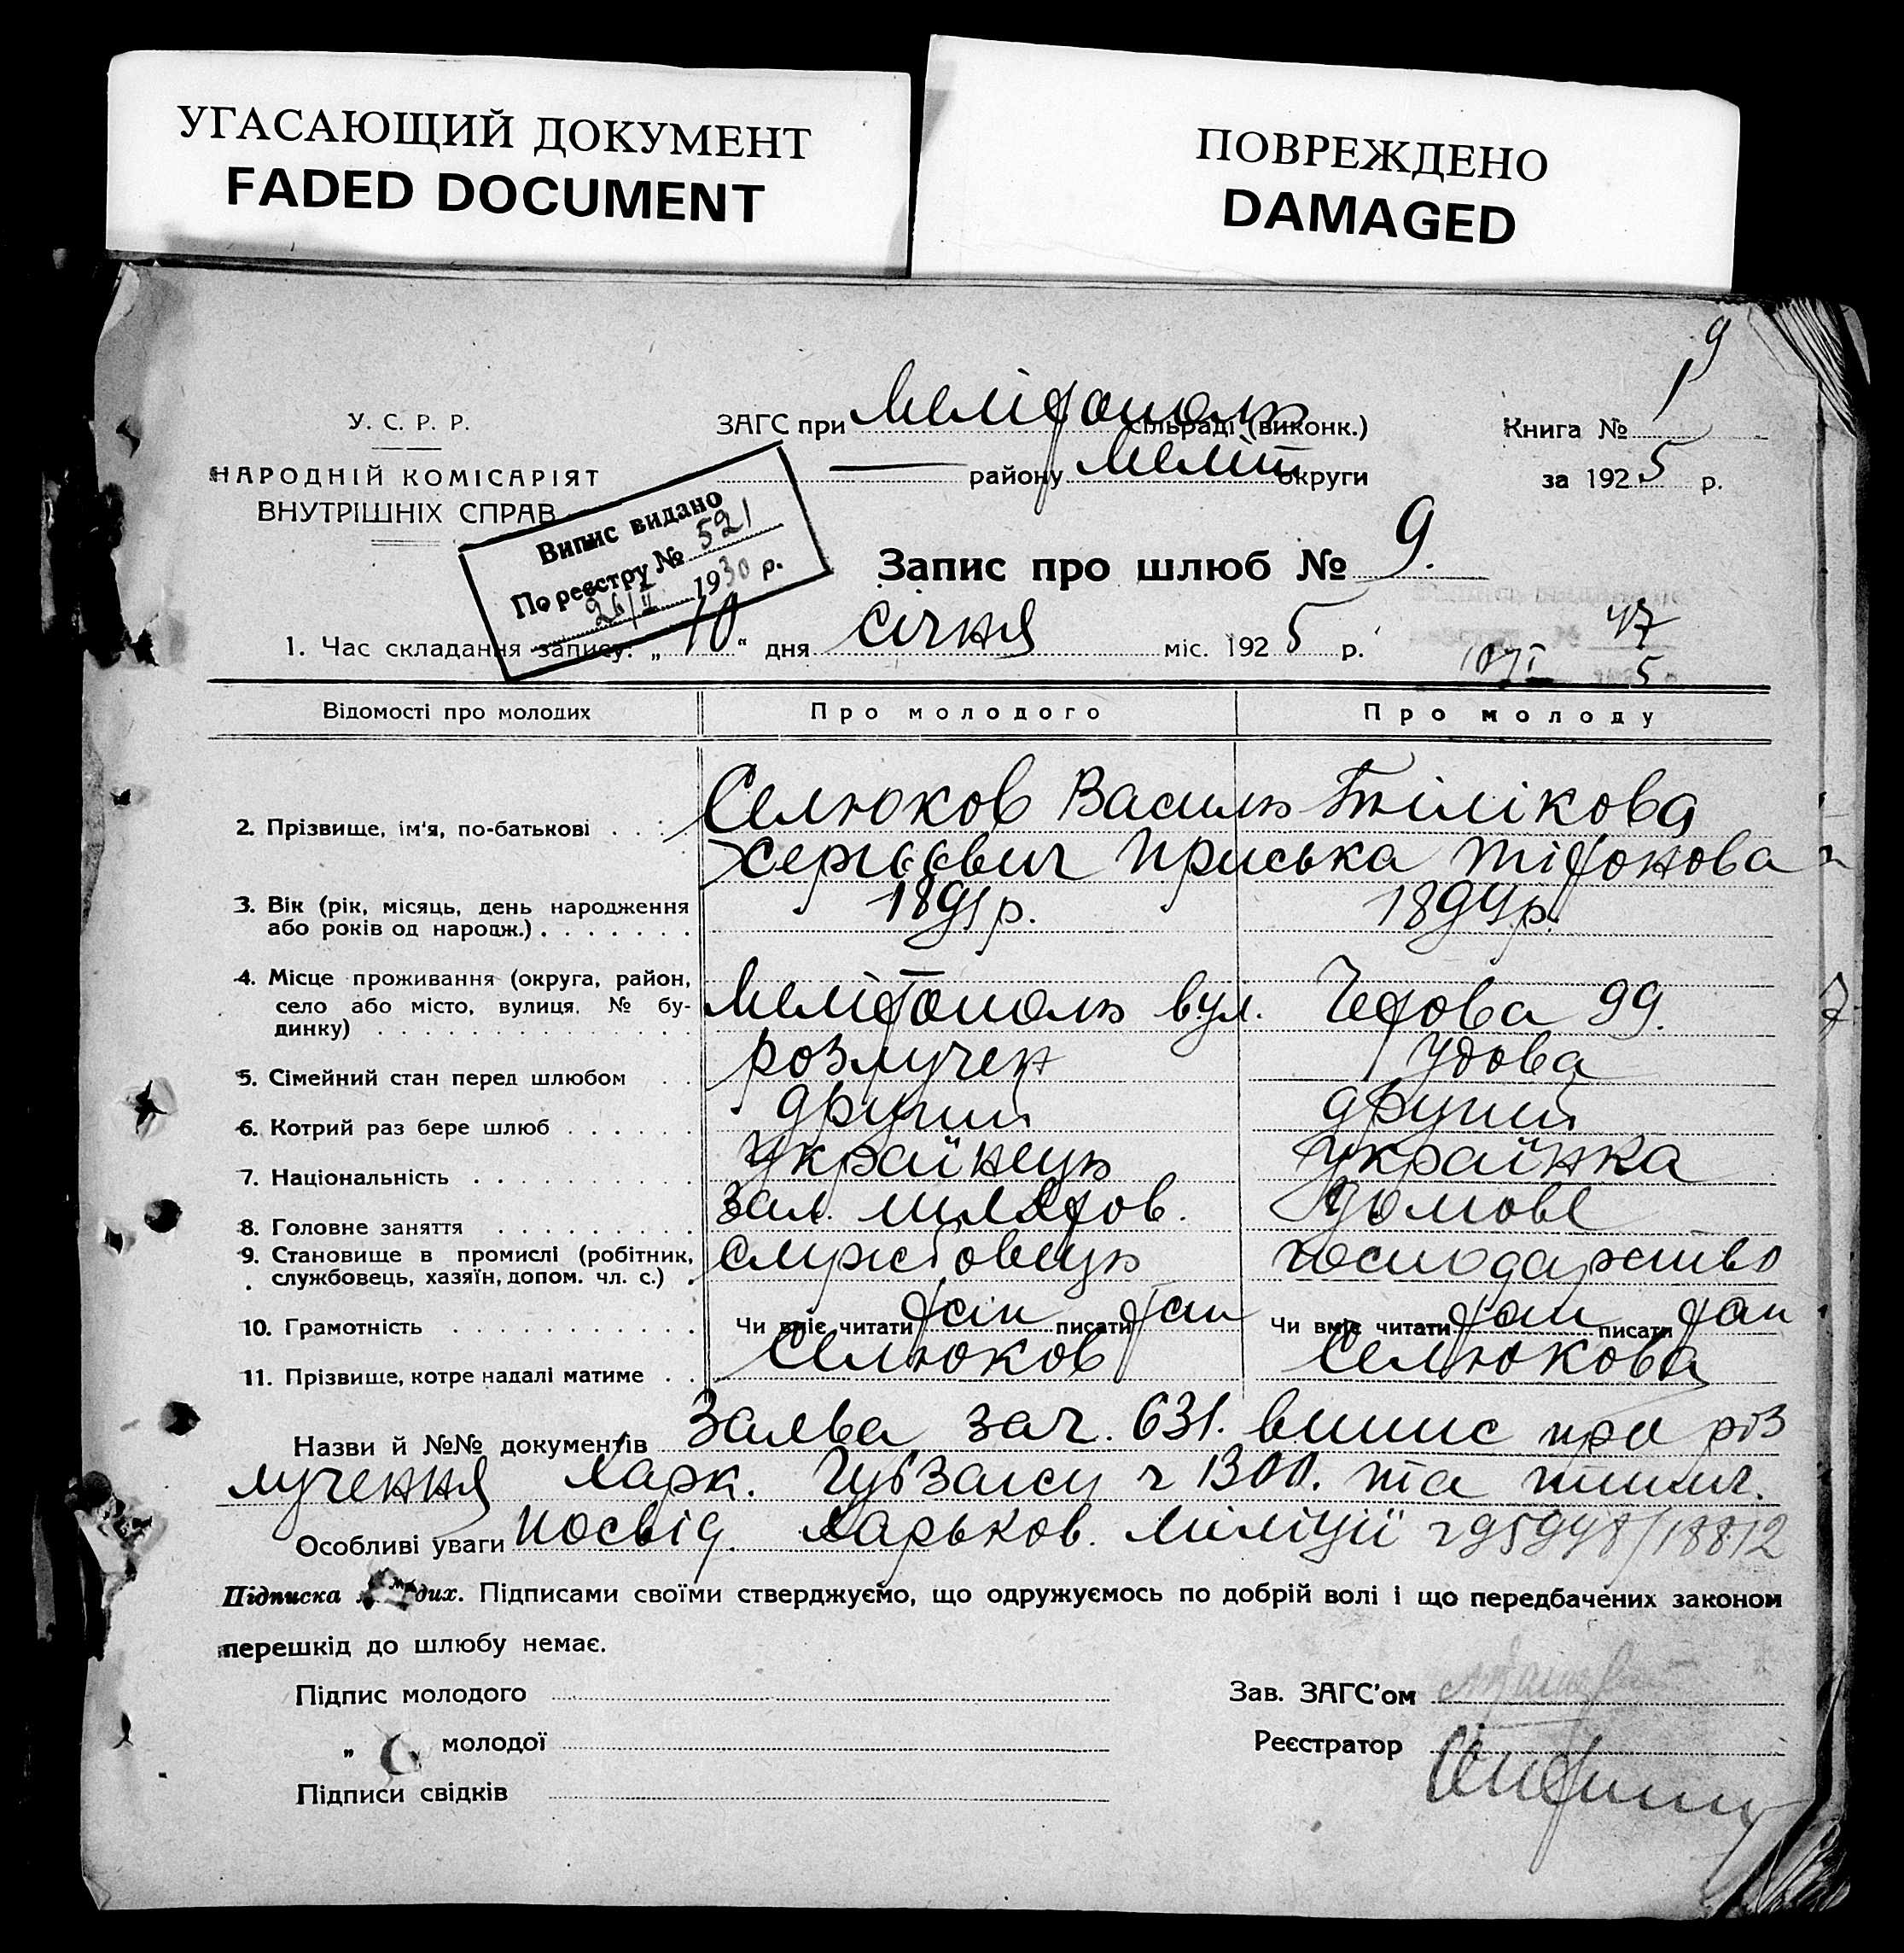 УГАСАЮЩИЙ ДОКУМЕНТ
FADED DOCUMENT
ПОВРЕЖДЕНО
DAMAGED
9
У. С. Р. Р.
НАРОДНІЙ КОМІСАРІЯТ
ВНУТРІШНІХ СПРАВ
ЗАГС при Мелітополь сільраді (виконк.)
району Меліт округи
Книга № 1
за 1925 р.
Випис видано
По реєстру № 521
26/II 1930 р.
Запис про шлюб № 9.
1. Час складання запису: „ 10 “ дня січня міс. 1925 р.
47
5
Відомості про молодих Про молодого Про молоду
2. Прізвище, ім'я, по-батькові . . . Селюков Василь Тілікова
Сергієвич Приська Тіфонова
3. Вік (рік, місяць, день народження
або років од народж.) . . . . . . . 1891 р. 1894 р.
4. Місце проживання (округа, район,
село або місто, вулиця, № бу-
динку) . . . Мелітополь вул. Чехова 99.
5. Сімейний стан перед шлюбом . . розлучен Удова
6. Котрий раз бере шлюб . . . . . . другий другий
7. Національність . . . . . . . . . українець українка
8. Головне заняття . . . . . . . . зал. домове
9. Становище в промислі (робітник,
службовець, хазяїн, допом. чл. с.) . службовець господарство
10. Грамотність . . . . . . . . . . Чи вміє читати так писати так Чи вміє читати так писати так
11. Прізвище, котре надалі матиме . . Селюков Селюкова
Назви й №№ документів Заява зач. 631. випис про роз
лучення Харк. Губзагсу ч 1300. та тимч.
Особливі уваги посвід. Харьков. міліції ч 95948/18812
Підписка молодих. Підписами своїми стверджуємо, що одружуємось по добрій волі і що передбачених законом
перешкід до шлюбу немає.
Підпис молодого
„ молодої
Підписи свідків
Зав. ЗАГС'ом
Реєстратор